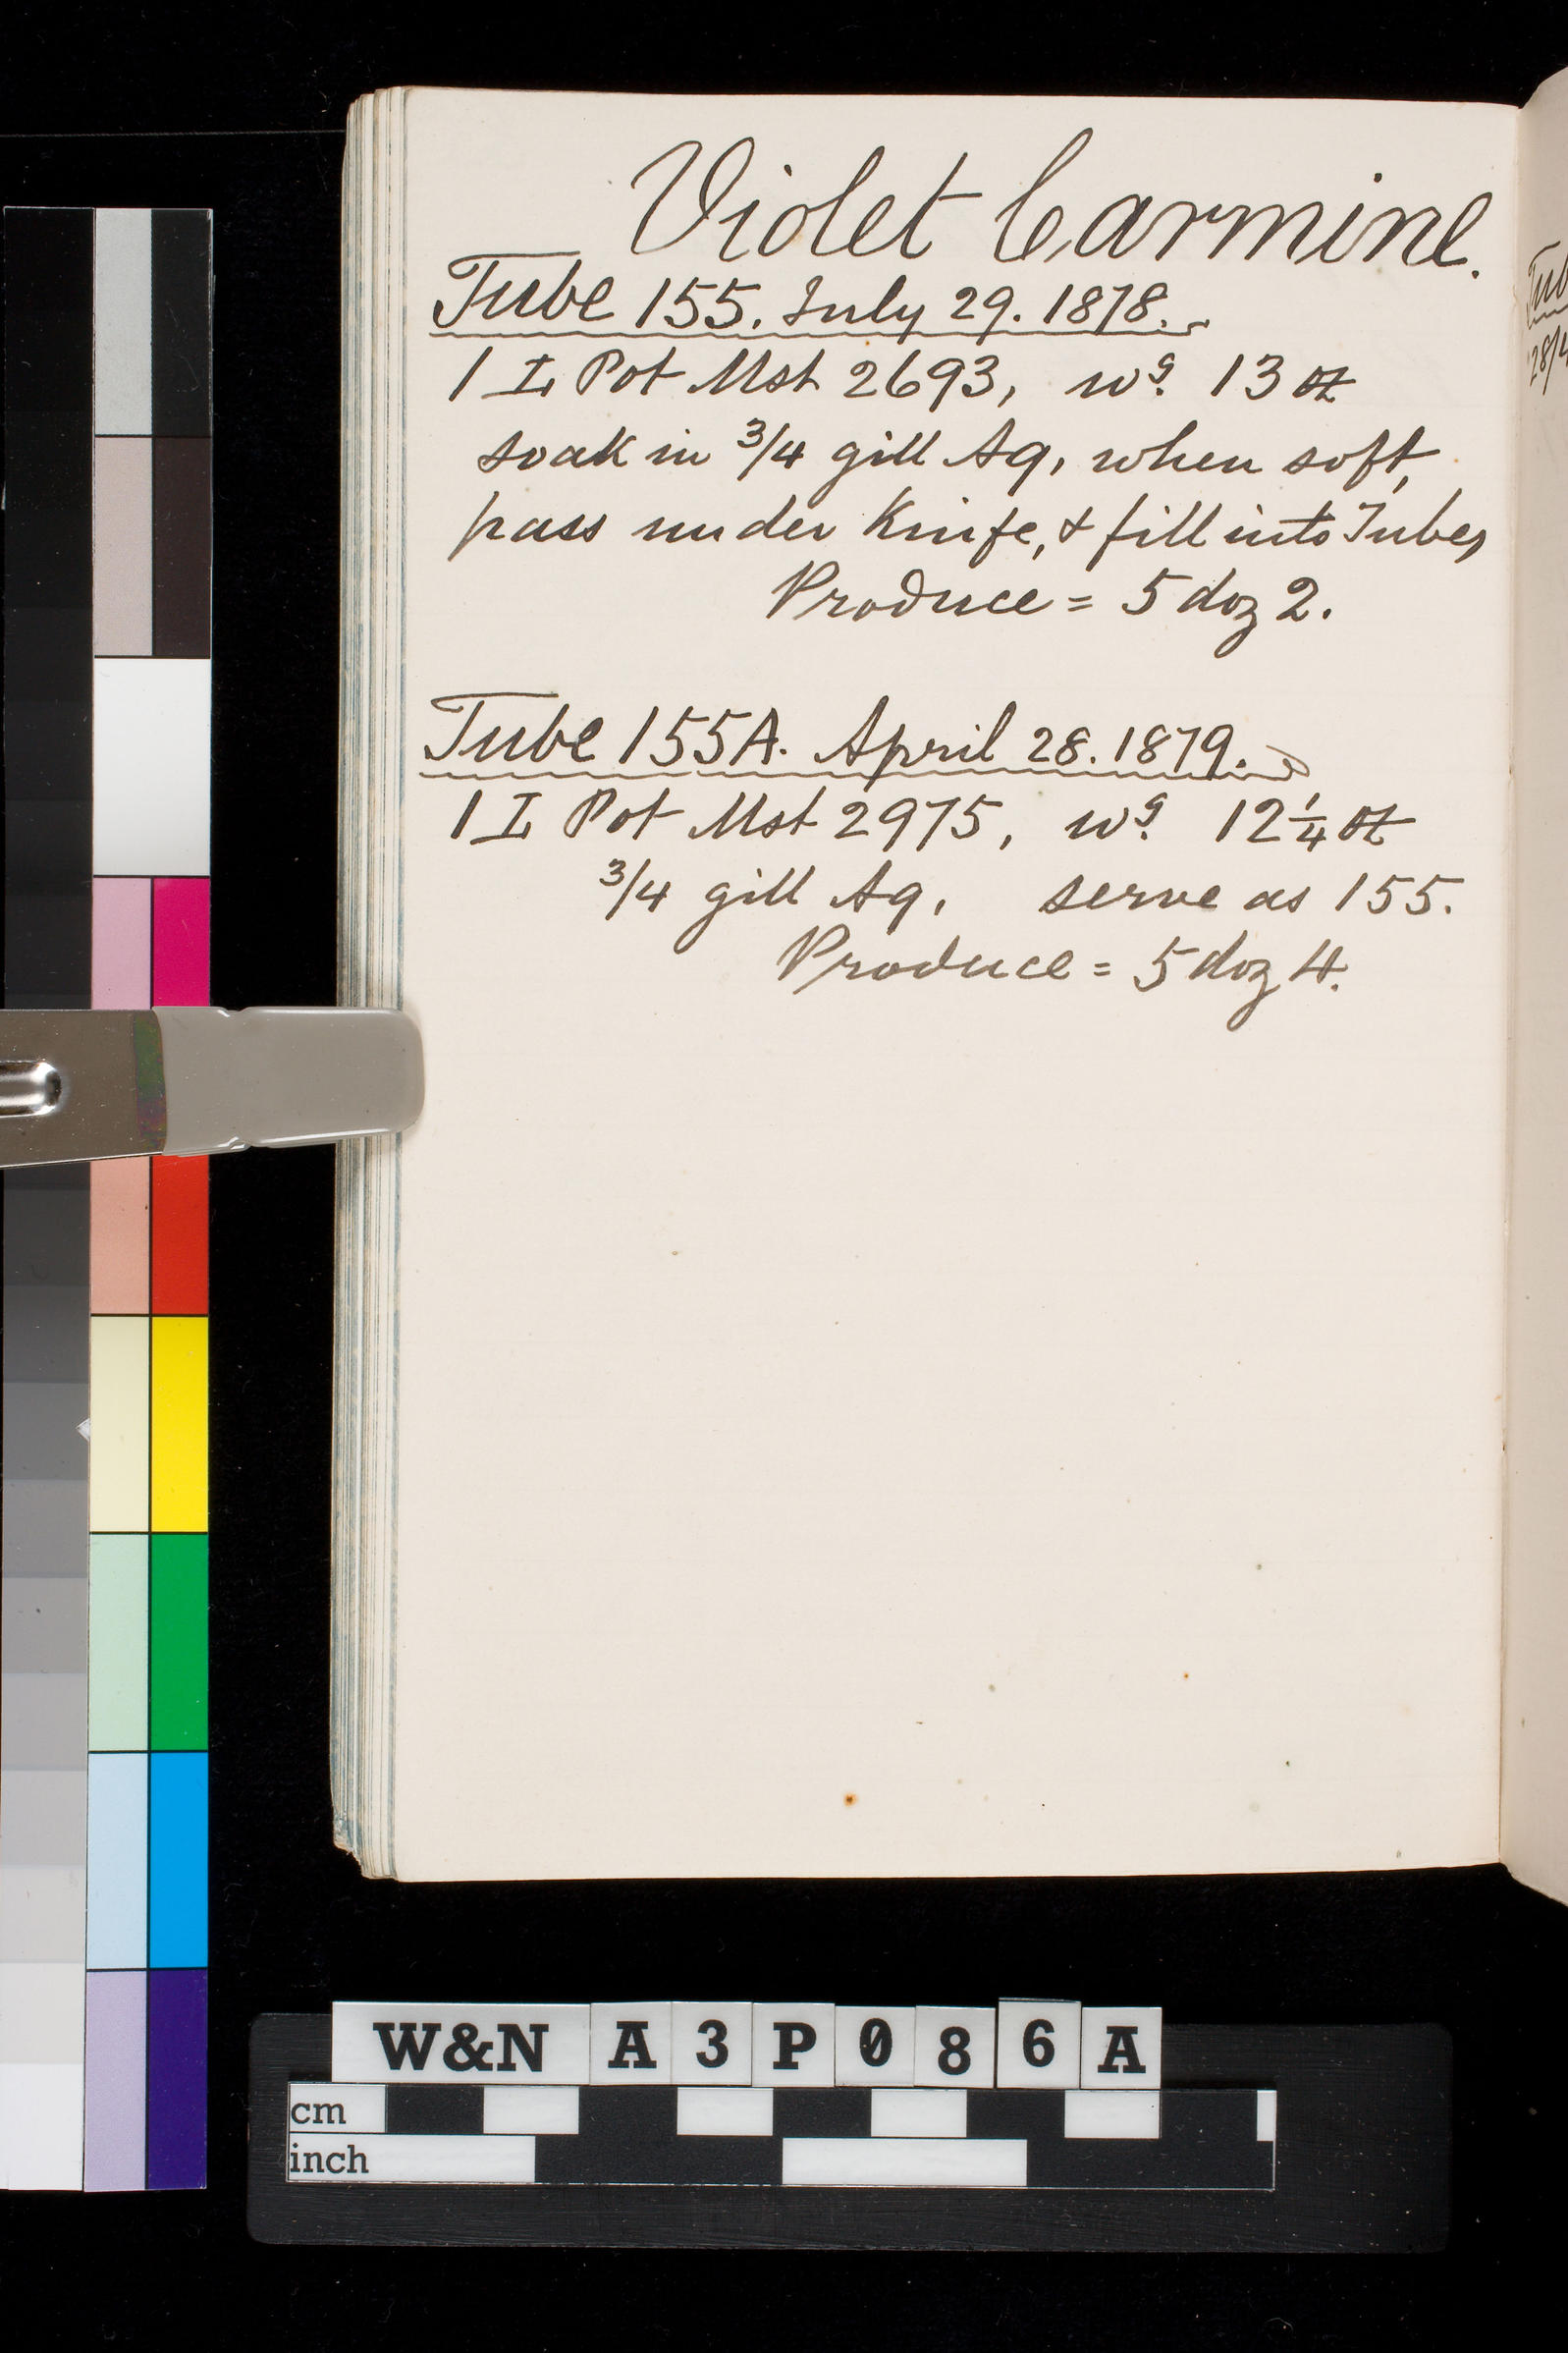 Violet Carmine.
Tube 155. July 29. 1878.
1 I Pot Mst 2693, wg. 13 oz
soak in 3/4 gill Aq, when soft,
pass under Knife, & fill into Tubes
Produce = 5 doz 2.
Tube 155A. April 28. 1879.
1 I Pot Mst 2975, wg. 12 1/4 oz
3/4 gill Aq, serve as 155.
Produce = 5 doz 4.
Tub
28/4
W&N A3P086A
cm
inch